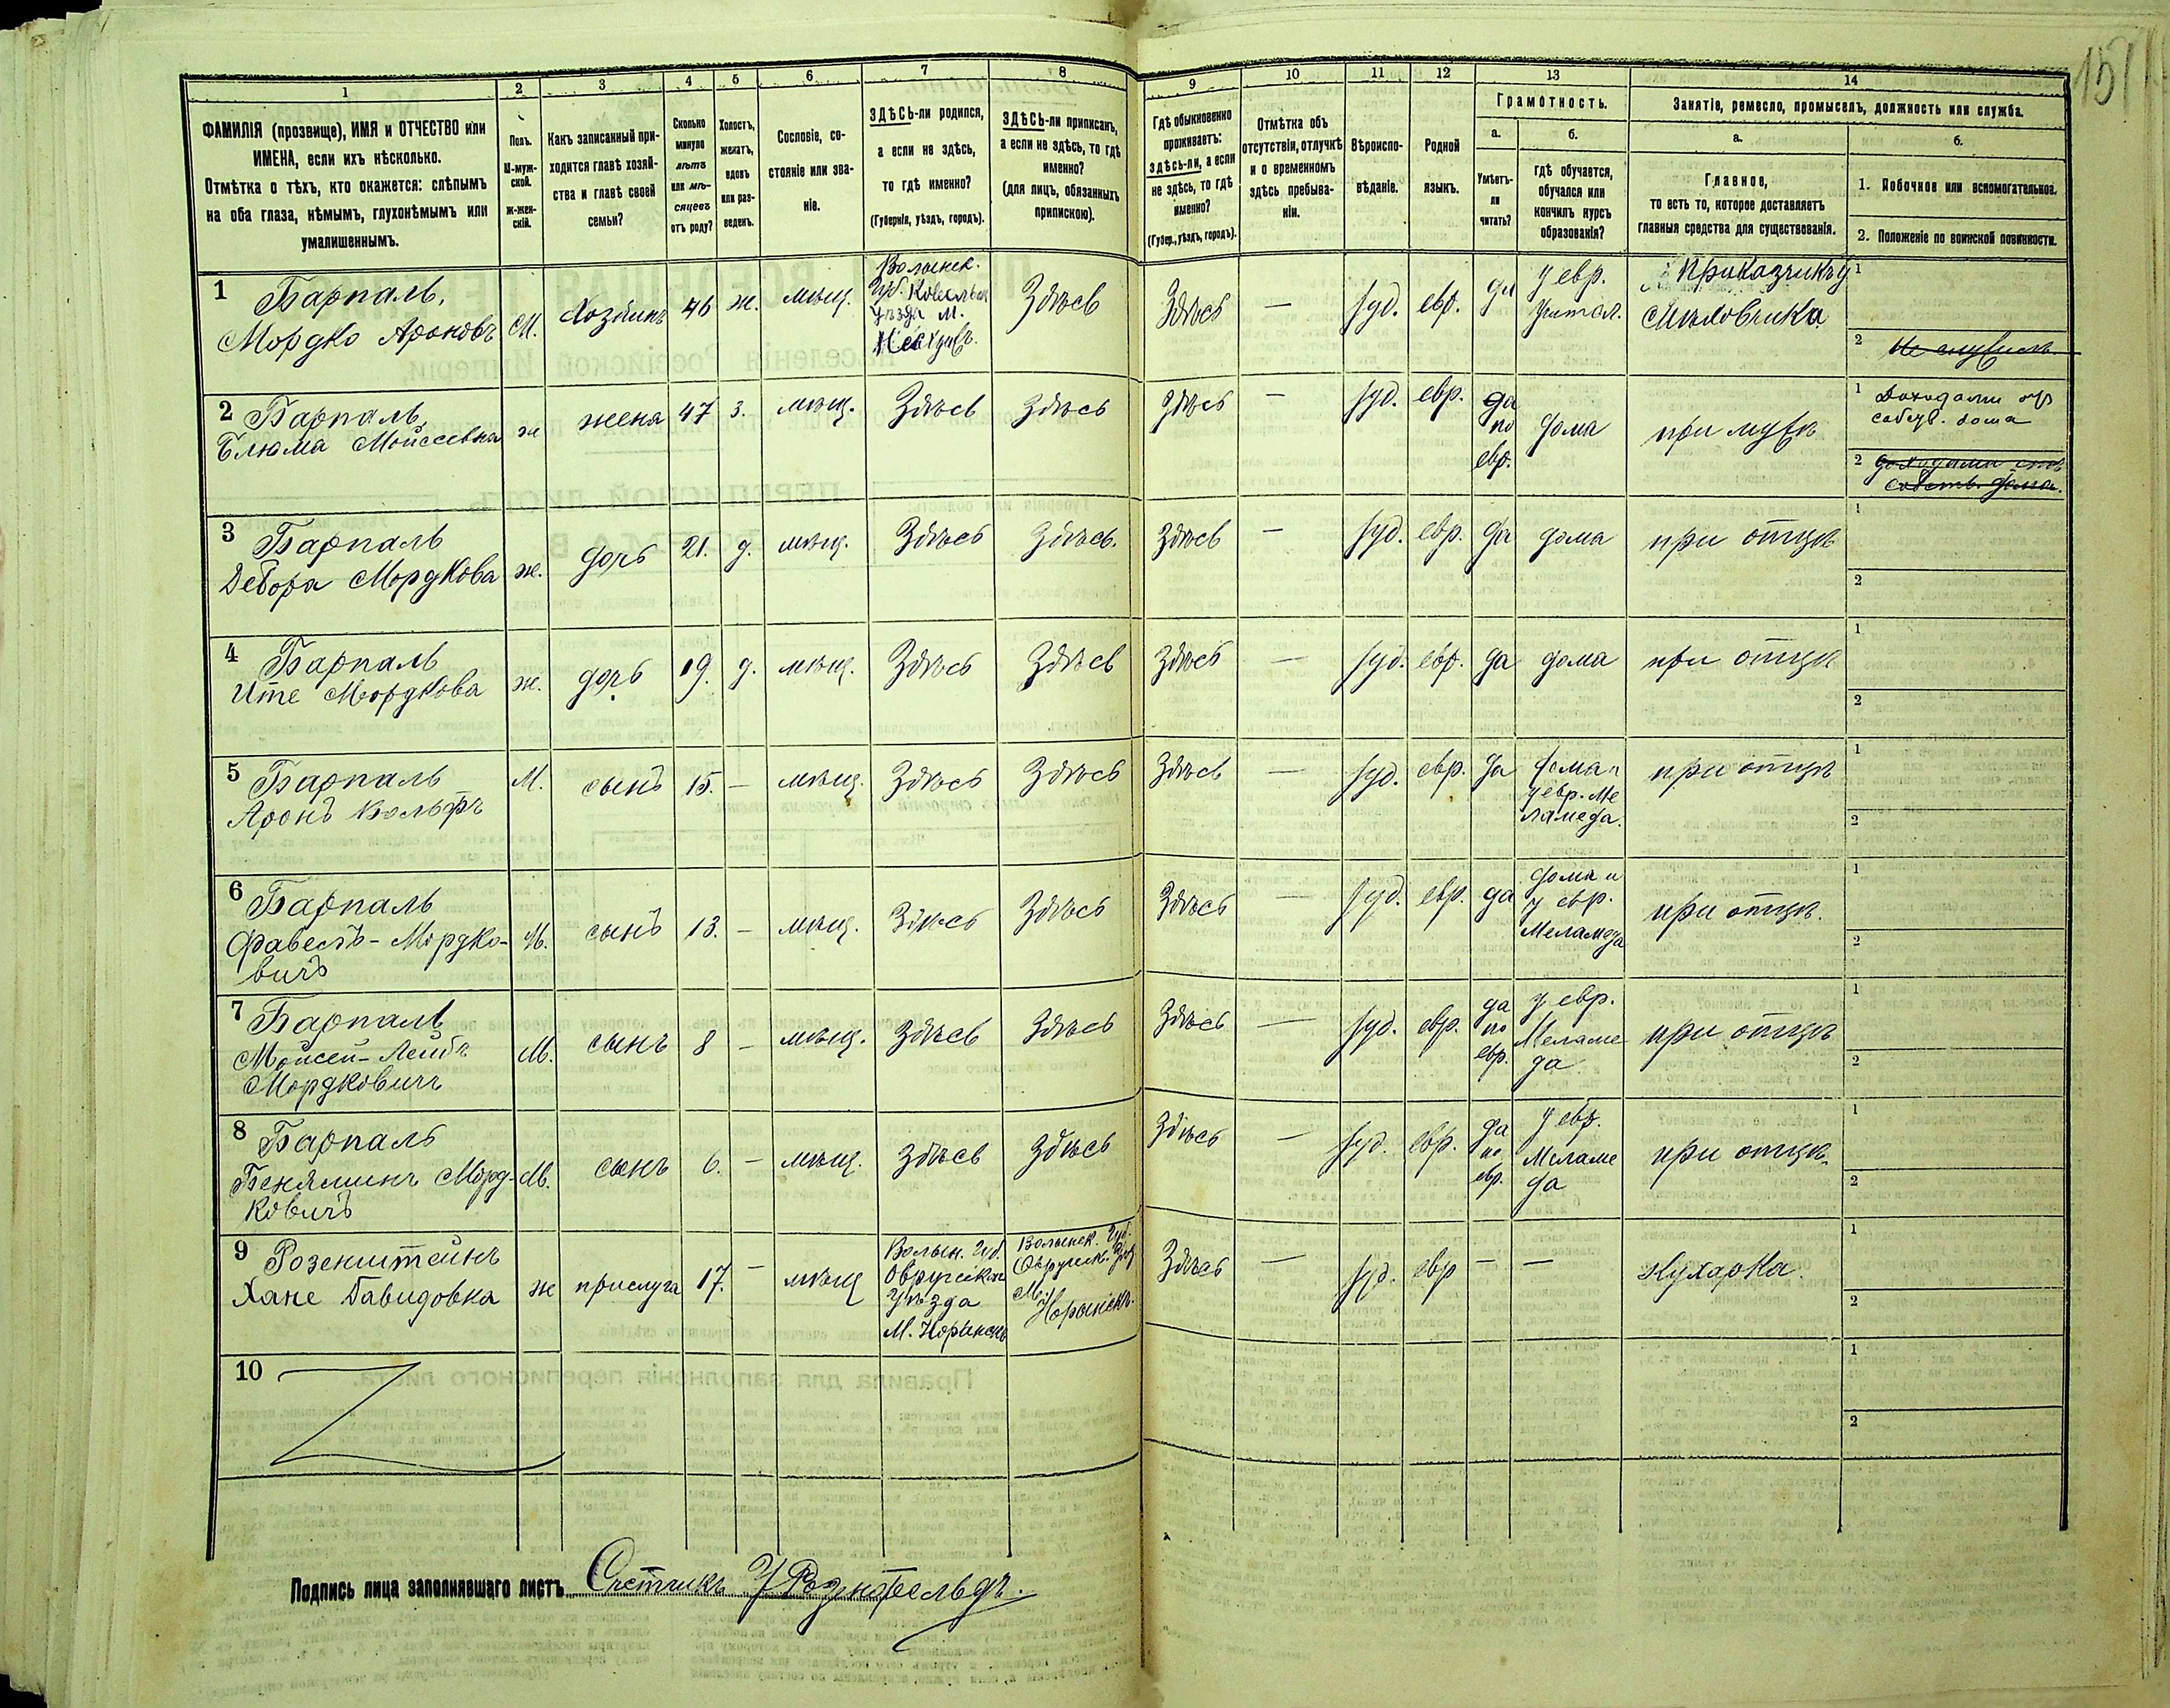 151
1 2 3 4 5 6 7 8 9 10 11 12 13 14
ФАМИЛІЯ (прозвище), ИМЯ и ОТЧЕСТВО или
ИМЕНА, если ихъ нѣсколько.
Отмѣтка о тѣхъ, кто окажется: слѣпымъ
на оба глаза, нѣмымъ, глухонѣмымъ или
умалишеннымъ.
Полъ.
М-муж-
ской.
Ж-жен-
скій.
Какъ записанный при-
ходится главѣ хозяй-
ства и главѣ своей
семьи?
Сколько
минуло
лѣтъ
или мѣ-
сяцевъ
отъ роду?
Холостъ,
женатъ,
вдовъ
или раз-
веденъ.
Сословіе, со-
стояніе или зва-
ніе.
ЗДѢСЬ-ли родился,
а если не здѣсь,
то гдѣ именно?
(Губернія, уѣздъ, городъ).
ЗДѢСЬ-ли приписанъ,
а если не здѣсь, то гдѣ
именно?
(для лицъ, обязанныхъ
припискою).
Гдѣ обыкновенно
проживаетъ:
здѣсь-ли, а если
не здѣсь, то гдѣ
именно?
(Губер., уѣздъ, городъ).
Отмѣтка объ
отсутствіи, отлучкѣ
и о временномъ
здѣсь пребыва-
ніи.
Вѣроиспо-
вѣданіе.
Родной
языкъ.
Грамотность.
а.
Умѣетъ-
ли
читать?
б.
Гдѣ обучается,
обучался или
кончилъ курсъ
образованія?
Занятіе, ремесло, промыселъ, должность или служба.
а.
Главное,
то есть то, которое доставляетъ
главныя средства для существованія.
б.
1. Побочное или вспомогательное.
2. Положеніе по воинской повинности.
1 Барпаль,
Мордко Ароновъ
М. Хозяинъ 46 ж. мѣщ.
Волынск.
Губ. Ковельск
уѣзда м.
Здѣсь Здѣсь — іуд. евр. да
у евр.
учител.
Приказчикъ у
1
2 Не служилъ
2 Барпаль
Блюма Мойсеевна
ж жена 47 з. мѣщ. Здѣсь Здѣсь Здѣсь — іуд. евр.
да
по
евр.
дома при мужѣ
1 Доходами от
собств. дома
2 доходами отъ
собств. дома.
3 Барпаль
Дебора Мордкова
ж. дочь 21. д. мѣщ. Здѣсь Здѣсь. Здѣсь — іуд. евр. да дома при отцѣ
1
2
4 Барпаль
Ите Мордкова
ж. дочь 19. д. мѣщ. Здѣсь Здѣсь Здѣсь — іуд. евр. да дома при отцѣ
1
2
5 Барпаль
Аронъ Вольфъ
М. сынъ 15. — мѣщ. Здѣсь Здѣсь Здѣсь — іуд. евр. да
дома и
у евр. Ме
ламеда.
при отцѣ
1
2
6 Барпаль
Файвель - Мордко-
вичъ
М. сынъ 13. — мѣщ. Здѣсь Здѣсь Здѣсь — іуд. евр. да
дома и
у евр.
Меламеда
при отцѣ.
1
2
7 Барпаль
Мойсей - Лейбъ
Мордковичъ
М. сынъ 8 — мѣщ. Здѣсь Здѣсь Здѣсь — іуд. евр.
да
по
евр.
у евр.
Меламе
да
при отцѣ
1
2
8 Барпаль
Беняминъ Морд-
ковичъ
М. сынъ 6. — мѣщ. Здѣсь Здѣсь Здѣсь — іуд. евр.
да
по
евр.
у евр.
Меламе
да
при отцѣ.
1
2
9 Розенштейнъ
Хане Давидовна
ж прислуга 17. — мѣщ
Волын. Губ.
Овручскаго
Уѣзда
М. Норинскъ
Волынск. Губ.
Овручск. Уѣз.
М.
Норинскъ.
Здѣсь — іуд. евр — — Кухарка.
1
2
10
1
2
Подпись лица заполнявшаго листъ Счетчикъ У Розенфельдъ.